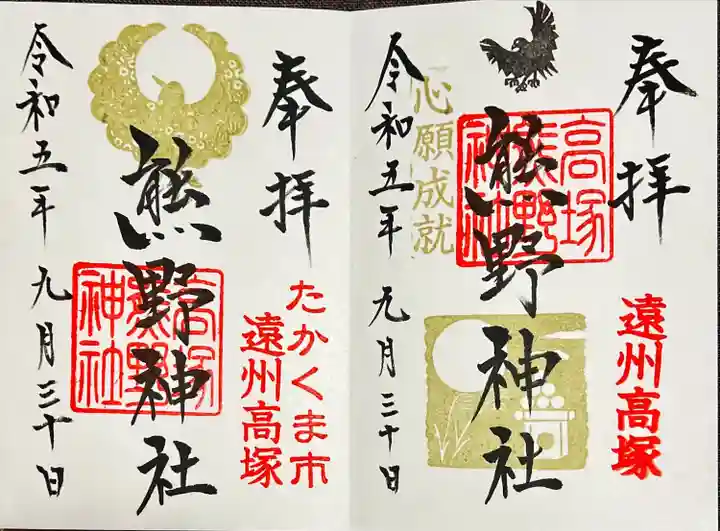 奉拝
遠州高塚
高塚熊野神社
熊野神社
心願成就
令和五年九月三十日
奉拝
たかくま市
遠州高塚
高塚熊野神社
熊野神社
令和五年九月三十日